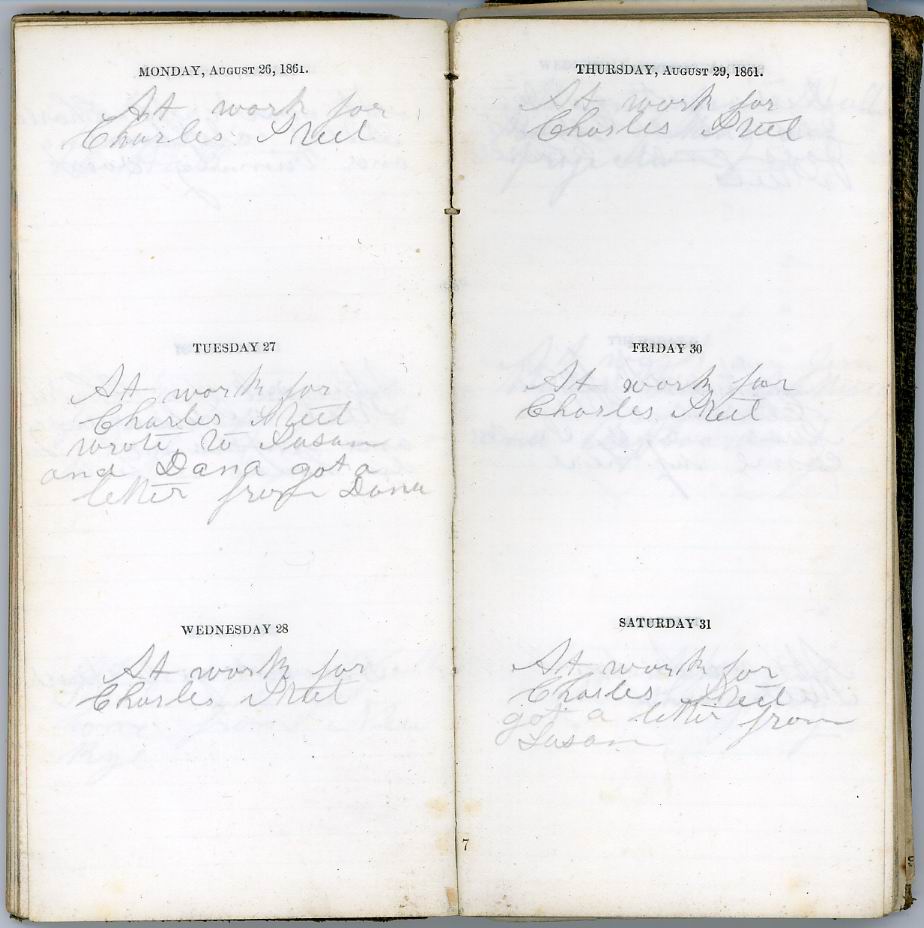 MONDAY, AUGUST 26, 1861.
At work for
Charles
TUESDAY 27
At work for
Charles
wrote to Susan
and Dana got a
letter from Dana
WEDNESDAY 28
At work for
Charles
THURSDAY, AUGUST 29, 1861.
At work for
Charles
FRIDAY 30
At work for
Charles
SATURDAY 31
At work for
Charles
got a letter from
Susan
7